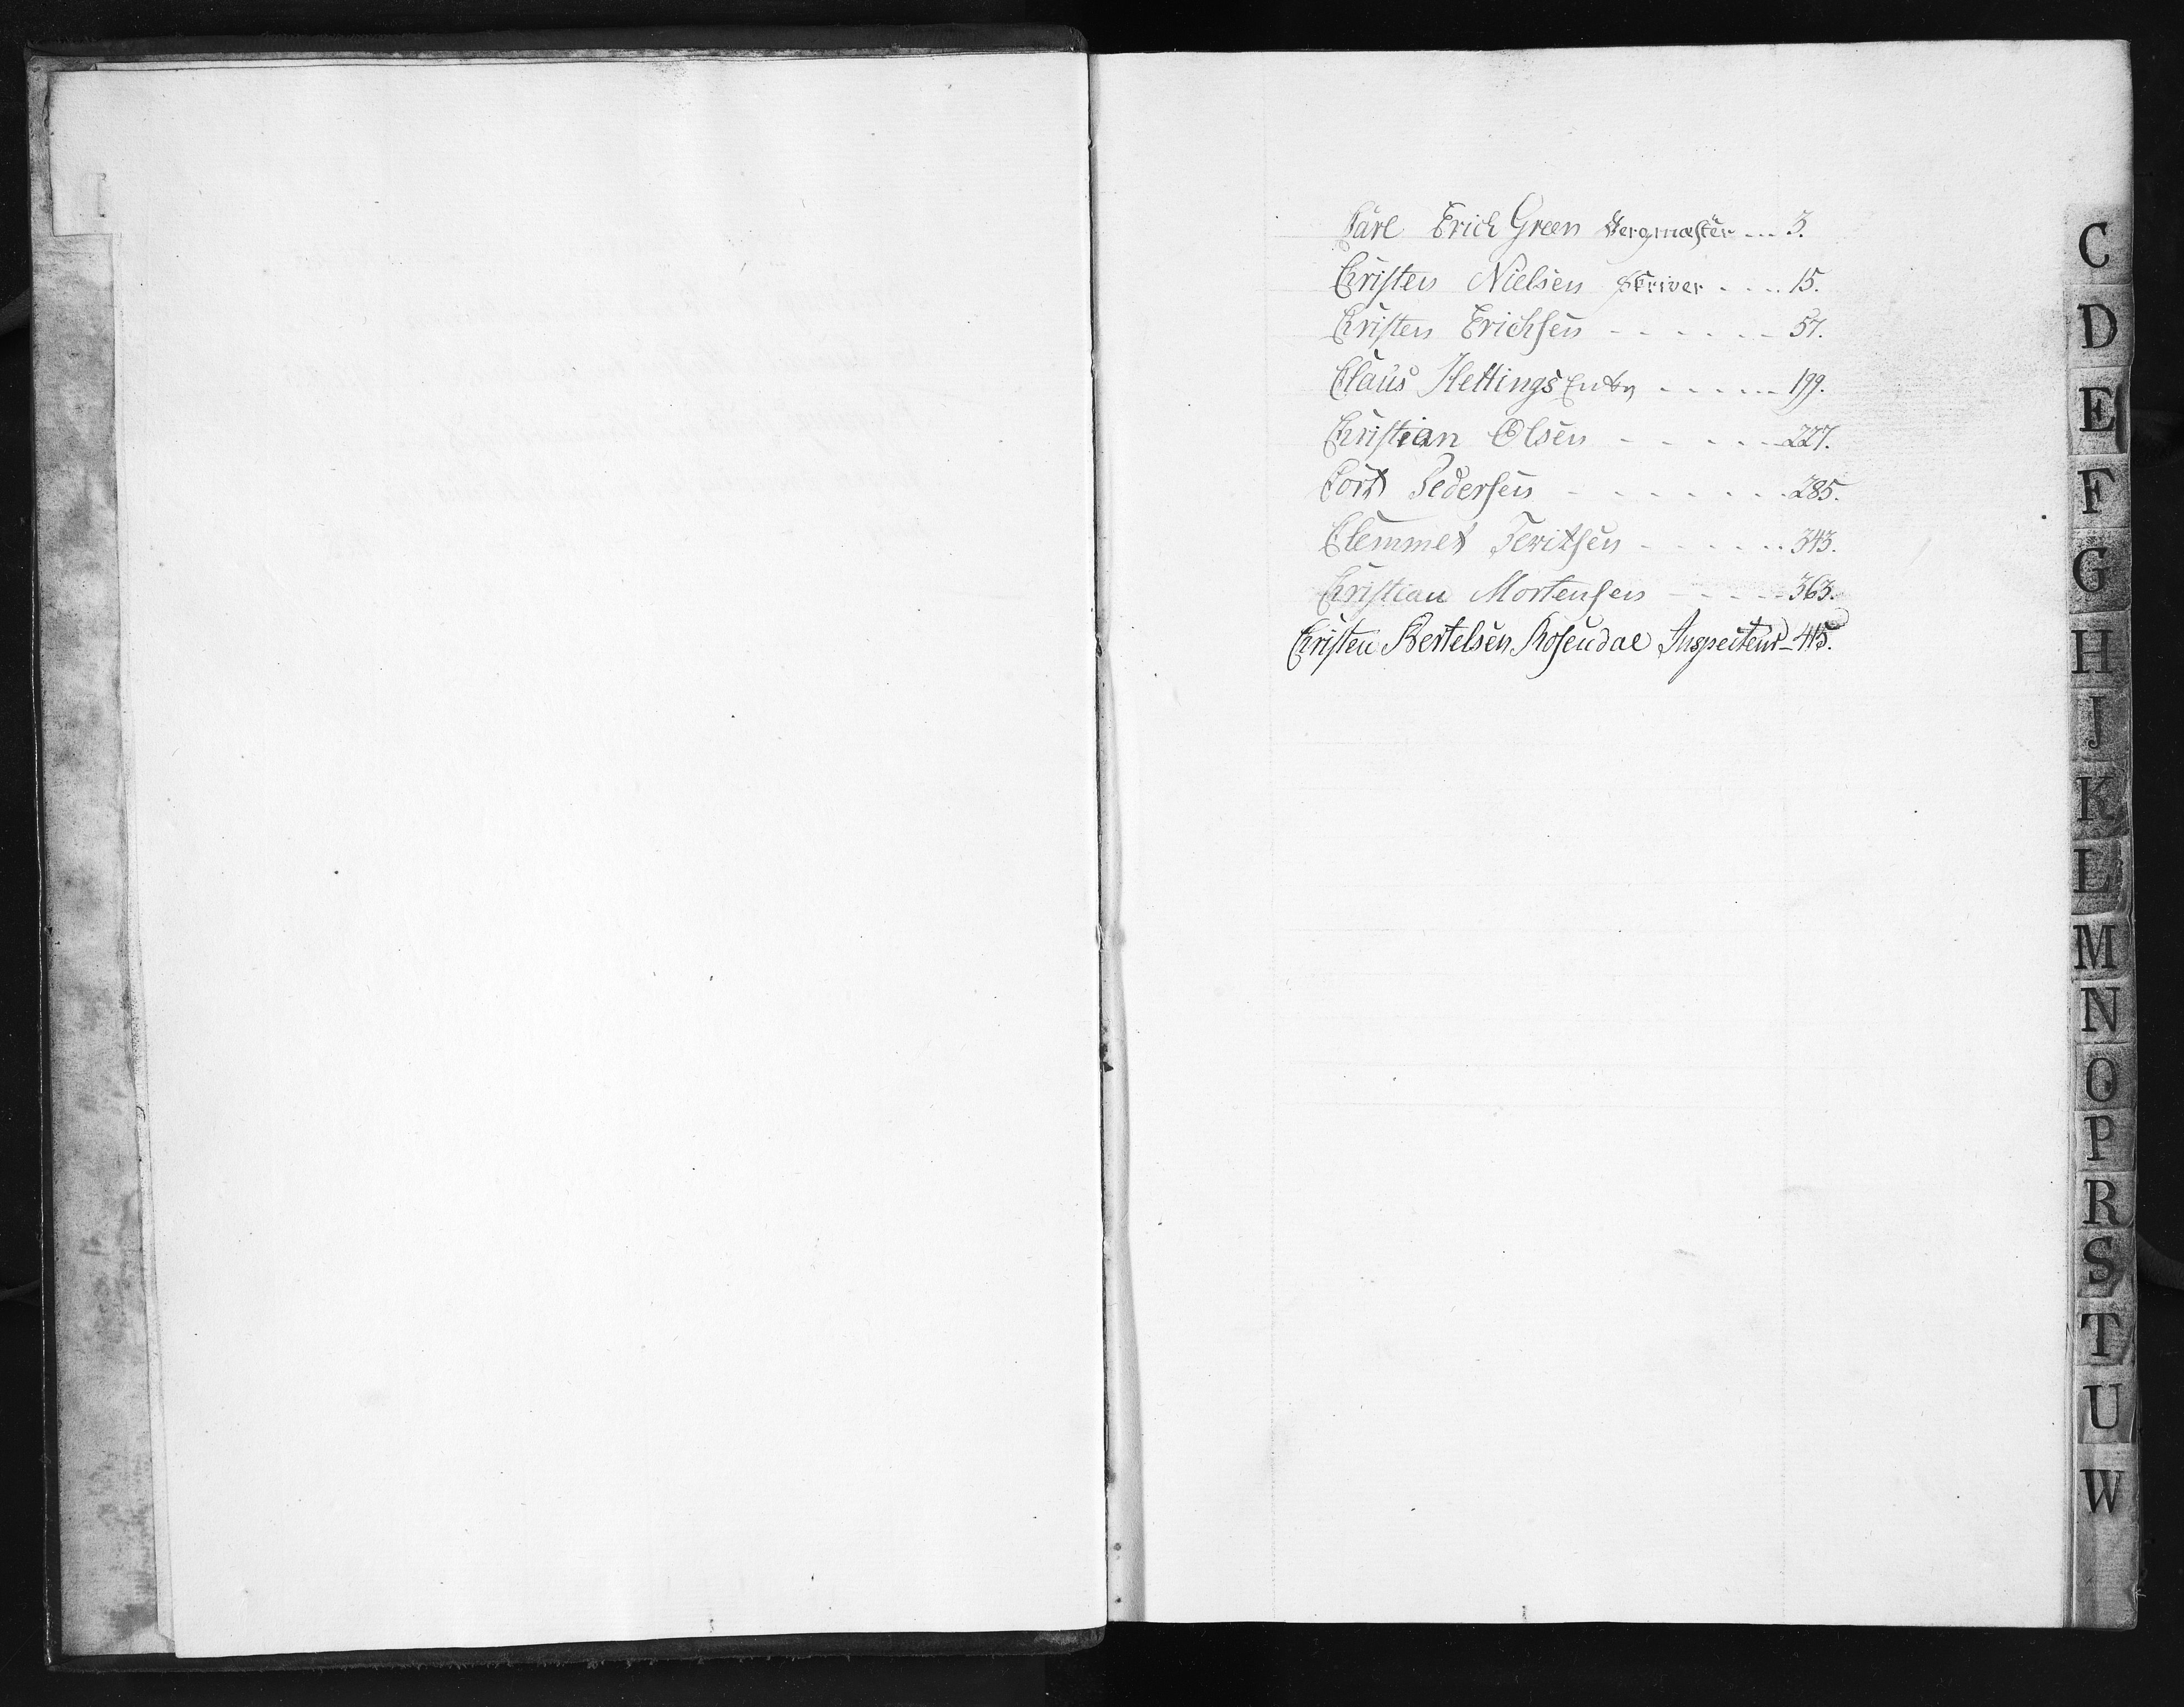 Carl Erich Green Bergmester ... 3.
Christen Nielsen Skriver .... 15.
Christen Erichsen - - - - - - 57.
Claus Hettings Enke - - - - - 199.
Christian Olsen - - - - - 227.
Cort Pedersen - - - - - - - 285.
Clemmet - - - - - - 343.
Christian Mortensen - - - - - 363.
Christen Bertelsen Rosendal Inspecteur - 415.
C
D
E
F
G
H
J
K
L
M
N
O
P
R
S
T
U
W